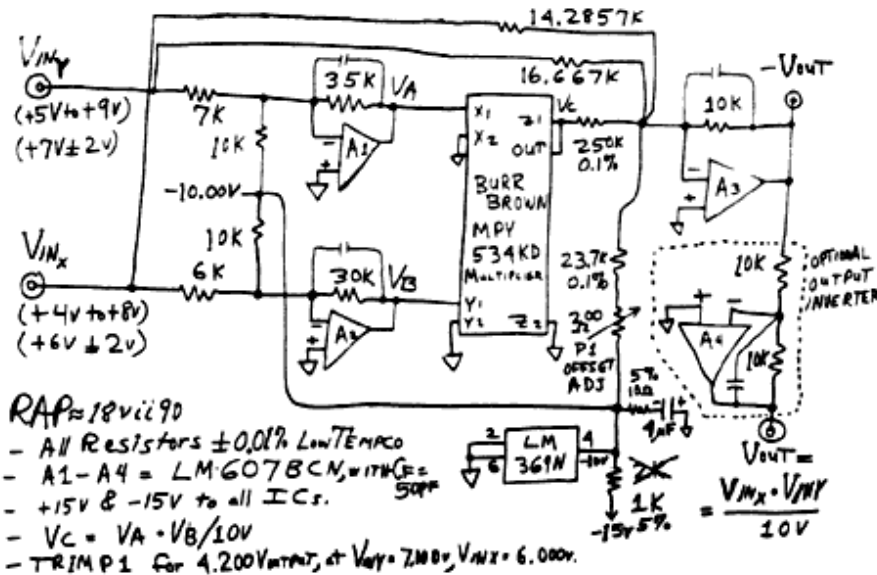 14.2857K
16.667K
VINY
(+5V to +9V)
(+7V ± 2V)
7K
35K
VA
10K
A1
-10.00V
10K
VINX
(+4V to +8V)
(+6V ± 2V)
6K
30K
VB
A2
X1
X2
Z1
OUT
BURR
BROWN
MPY
534KD
MULTIPLIER
Y1
Y2
Z2
VC
250K
0.1%
23.7K
0.1%
200
Ω
P1
OFFSET
ADJ
10K
-VOUT
A3
10K
OPTIONAL
OUTPUT
INVERTER
A4
10K
5%
10Ω
4μF
2
6
LM
369N
4
-10V
1K
-15V 5%
VOUT =
= VINX • VINY
10V
RAP≈18vii90
- All Resistors ±0.01% Low TEMPCO
- A1-A4 = LM607BCN, WITH CF =
50PF
- +15V & -15V to all ICs.
- VC = VA • VB/10V
- TRIM P1 for 4.200VOUTPUT, at VINY = 7.000V, VINX = 6.000V.